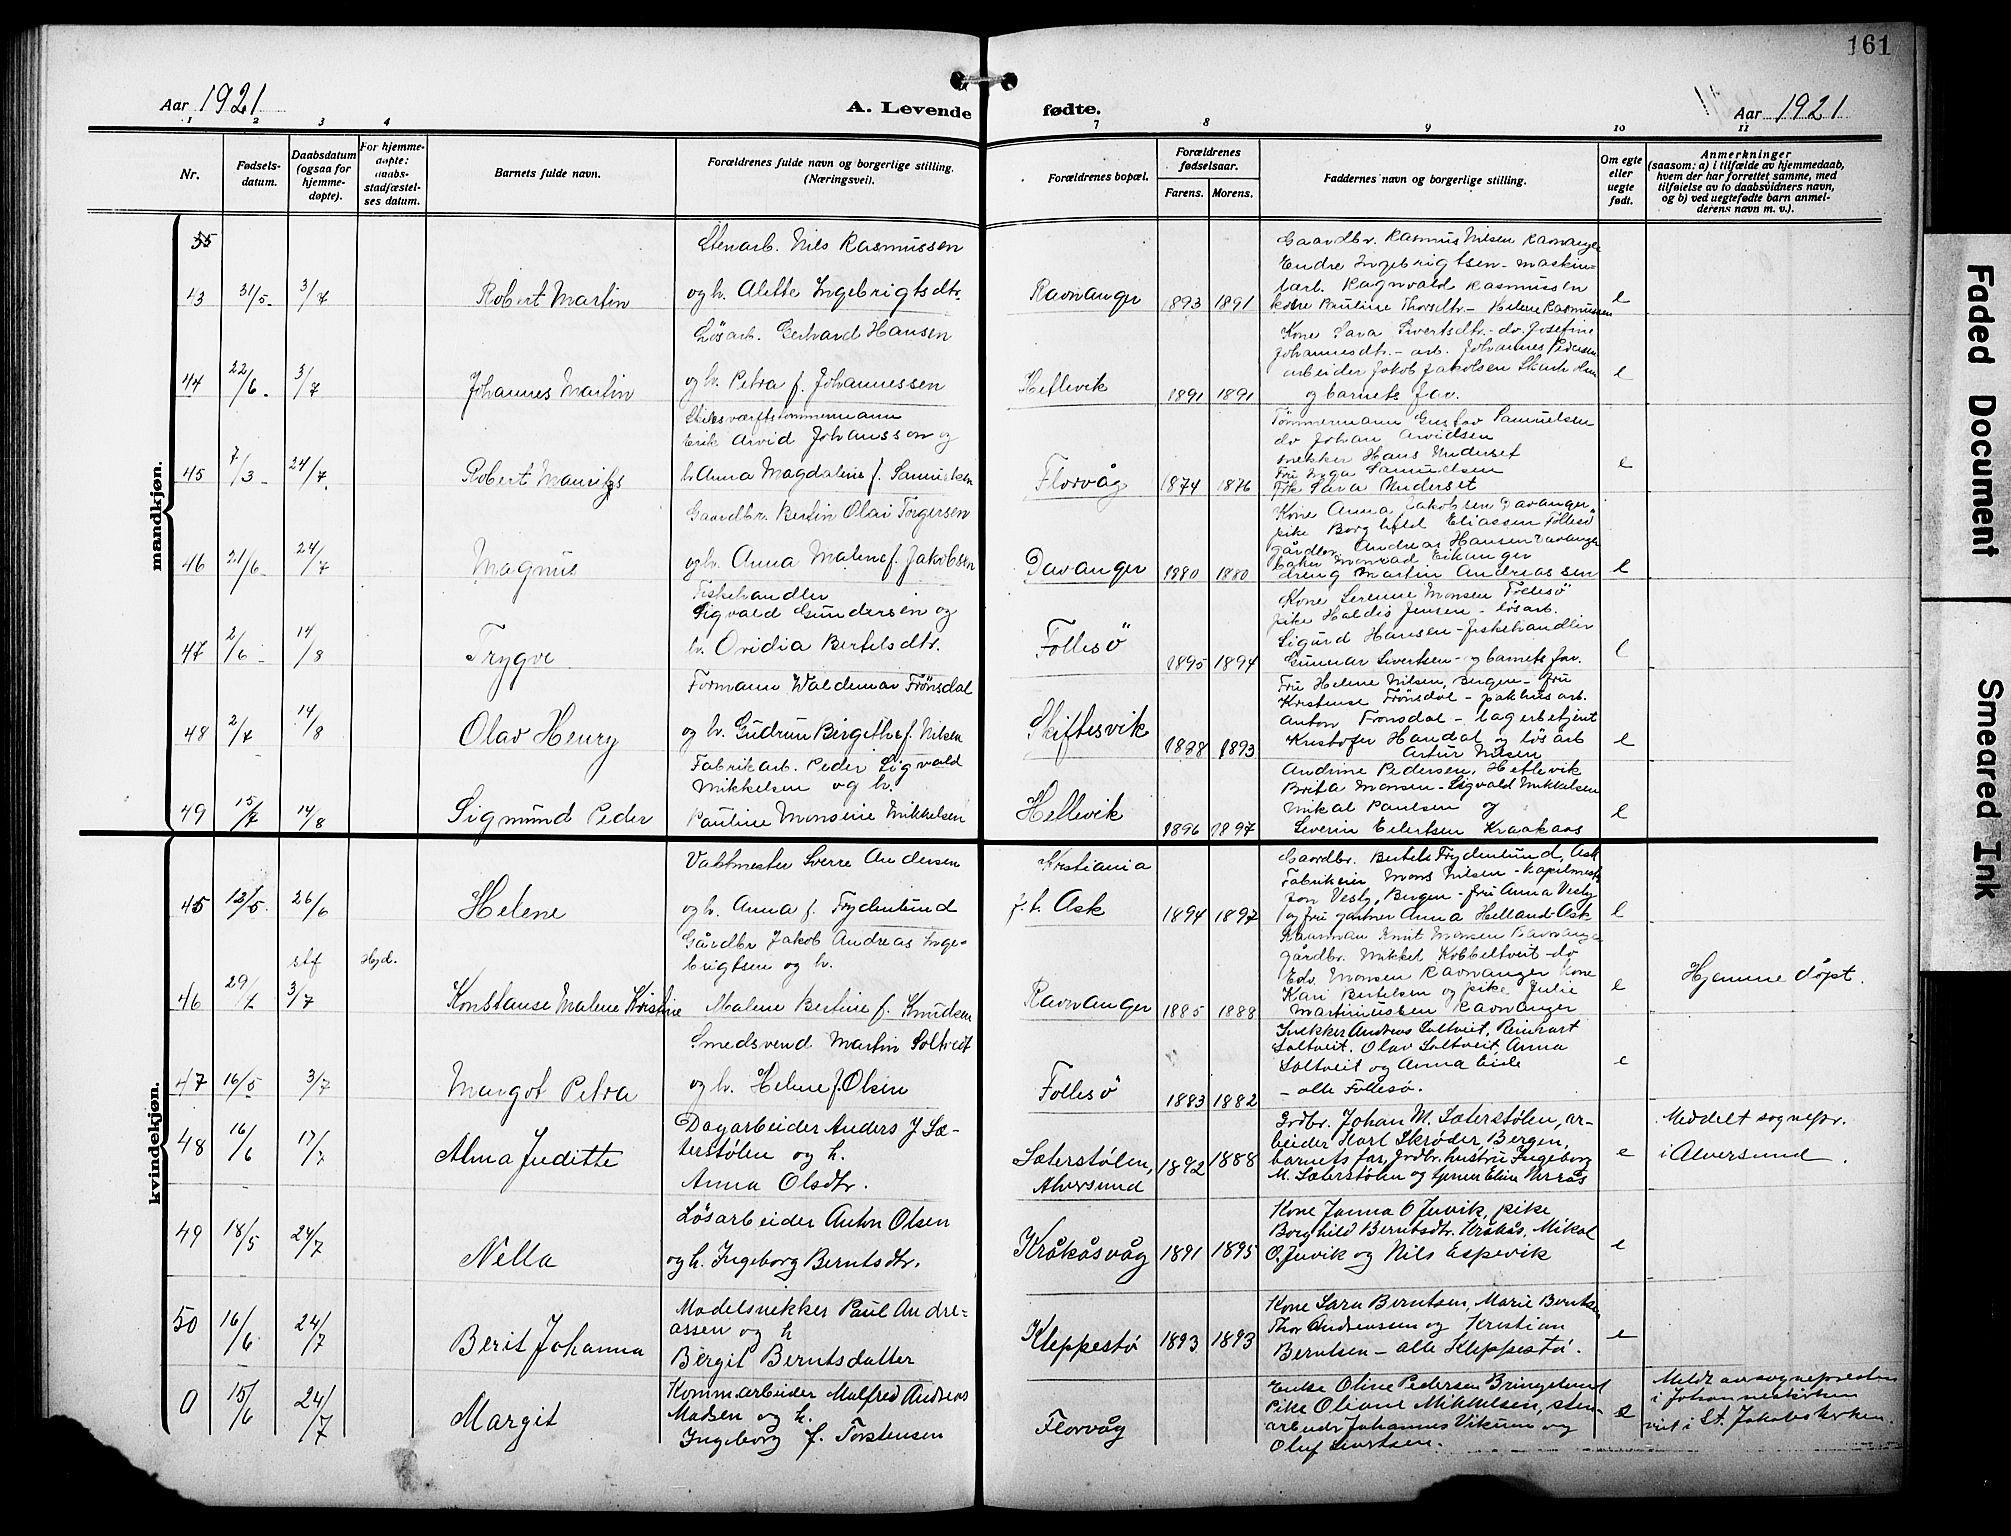 161
Aar 1921
A. Levende fødte.
Aar 1921
1 2 3 4 7 8 9 10 11
Nr.
Fødsels-
datum.
Daabsdatum
(ogsaa for
hjemme-
døpte).
For hjemme-
døpte:
daabs-
stadfæstel-
ses datum.
Barnets fulde navn.
Forældrenes fulde navn og borgerlige stilling.
(Næringsvei).
Forældrenes bopæl.
Forældrenes
fødselsaar.
Farens. Morens.
Faddernes navn og borgerlige stilling.
Om egte
eller
uegte
født.
Anmerkninger
(saasom: a) i tilfælde av hjemmedaab,
hvem der har forrettet samme, med
tilføielse av to daabsvidners navn,
og b) ved uegtefødte barn anmel-
derens navn m. v.).
mandkjøn.
43 31/5 3/7
Robert Martin
Stenarb. Nils Rasmussen
og h. Alette Ingebrigtsdtr.
Ravnanger 1893 1891
Gaardbr. Rasmus Nilsen Ravnanger
Endre Ingebrigtsen - maskin-
arb. Ragnvald Rasmussen
kone Pauline Thorsdtr - Helene Rasmussen
e
44 22/6 3/7
Johannes Martin
Løsarb. Gerhard Hansen
og h. Petra f. Johannessen
Hetlevik 1891 1891
Kone Sara Sivertsdtr. - do. Josefine
Johannesdtr. - arb. Johannes Pedersen
arbeider Jakob Jakobsen
og barnets far.
e
45 7/3 24/7
Robert Mauritz
Skibsværftstømmermann
Erik Arvid Johansson og
h. Anna Magdalene f. Samuelsen
Florvåg 1874 1876
Tømmermann Gustav Samuelsen
do Johan Arvidsen
snekker Hans Underset
Fru Inga Samuelsen
Frk Sara Underset
e
46 21/6 24/7
Magnus
Gaardbr. Bertin Olai Torgersen
og h. Anna Malene f. Jakobsen
Davanger 1880 1880
Kone Anna Jakobsen Davanger
pike Borghild Eliassen Follesø
gårdbr. Andreas Hansen Davanger
baker Monrad Eikanger
dreng Martin Andreassen
e
47 2/6 14/8
Trygve
Fiskehandler
Sigvald Gundersen og
h. Ovidia Bertelsdtr.
Follesø 1895 1894
Kone Serine Monsen Follesø
pike Haldis Jensen - løsarb.
Sigurd Hansen - fiskehandler
Gunnar Sivertsen - og barnets far.
e
48 2/7 14/8
Olav Henry
Formann Waldemar Frønsdal
og h. Gudrun Birgithe f. Nilsen
Skiftesvik 1898 1893
Fru Helene Nilsen, Bergen - fru
Kristense Frønsdal - pakhusarb.
Anton Frønsdal - lagerbetjent
Kristofer Handal og løsarb
Artur Nilsen
e
49 15/7 14/8
Sigmund Peder
Fabrikarb. Peder Sigvald
Mikkelsen og h.
Pauline Monsine Mikkelsen
Hetlevik 1896 1897
Andrine Pedersen, Hetlevik
Brita Monsen - Sigvald Mikkelsen
Mikal Paulsen og
Severin Eilertsen Kraakaas
e
kvindekjøn.
45 12/5 26/6
Helene
Vaktmester Sverre Andersen
og h. Anna f. Frydenlund
Kristiania
f. t. Ask 1894 1897
Gaardbr. Bertels Frydenlund, Ask
Fabrikeier Mons Nilsen - Kapelmest
Vesby, Bergen - fru Anna Vesby
og fru gartner Anna Helland Ask
e
46 29/ stf 3/7 Hjd.
Konstanse Malene Kristine
Gårdbr Jakob Andreas Inge-
brigtsen og h.
Malene Bertine f. Knudsen
Ravnanger 1885 1888
Knut Monsen Ravnanger
gårdbr. Mikkel Kobbeltveit - do
Edv. Monsen Ravnanger kone
Kari Bertelsen og pike Julie
Martinussen Ravnanger
e
Hjemme døpt.
47 16/5 3/7
Margot Petra
Smedsvend Martin Soltveit
og h. Helene f. Olsen
Follesø 1883 1882
Snekker Andreas Soltveit, Reinhart
Soltveit. Olav Soltveit, Anna
Soltveit og Anna Eide
- alle Follesø.
e
48 16/6 17/7
Alma Juditte
Dagarbeider Anders J Sæ-
terstølen og h.
Anna Olsdtr.
Sæterstølen,
Alversund 1892 1888
Grdbr. Johan M. Sæterstølen, ar-
beider Karl Skrøder, Bergen,
barnets far, grdbr. hustru Ingeborg
M. Sæterstølen og Eline
e
Meddelt sognepr.
i Alversund.
49 18/5 24/7
Nella
Løsarbeider Anton Olsen
og h. Ingeborg Berntsdtr.
Kråkåsvåg 1891 1895
Kone Janna O Juvik, pike
Borghild Berntsdtr. Kråkås, Mikal
O. Juvik og Nils Espevik
e
50 16/6 24/7
Berit Johanna
Modelsnekker Paul Andre-
assen og h
Bergit Berntsdatter
Kleppestø 1893 1893
Kone Sara Berntsen, Marie Berntsen
Thor Andreassen og Kristian
Berntsen - alle Kleppestø.
e
0 15/6 24/7
Margit
Kommarbeider Malfred Andreas
Madsen og h.
Ingeborg f. Torstensen
Florvåg
Enke Oline Pedersen Bringelund
Pike Oliane Mikkelsen, sten-
arbeider Johannes Vikum og
Oluf Sivertsen.
e
Meldt av sognepresten
i Johanneskirken
viet i St. Jakobs kirken.
Faded Document
Smeared Ink